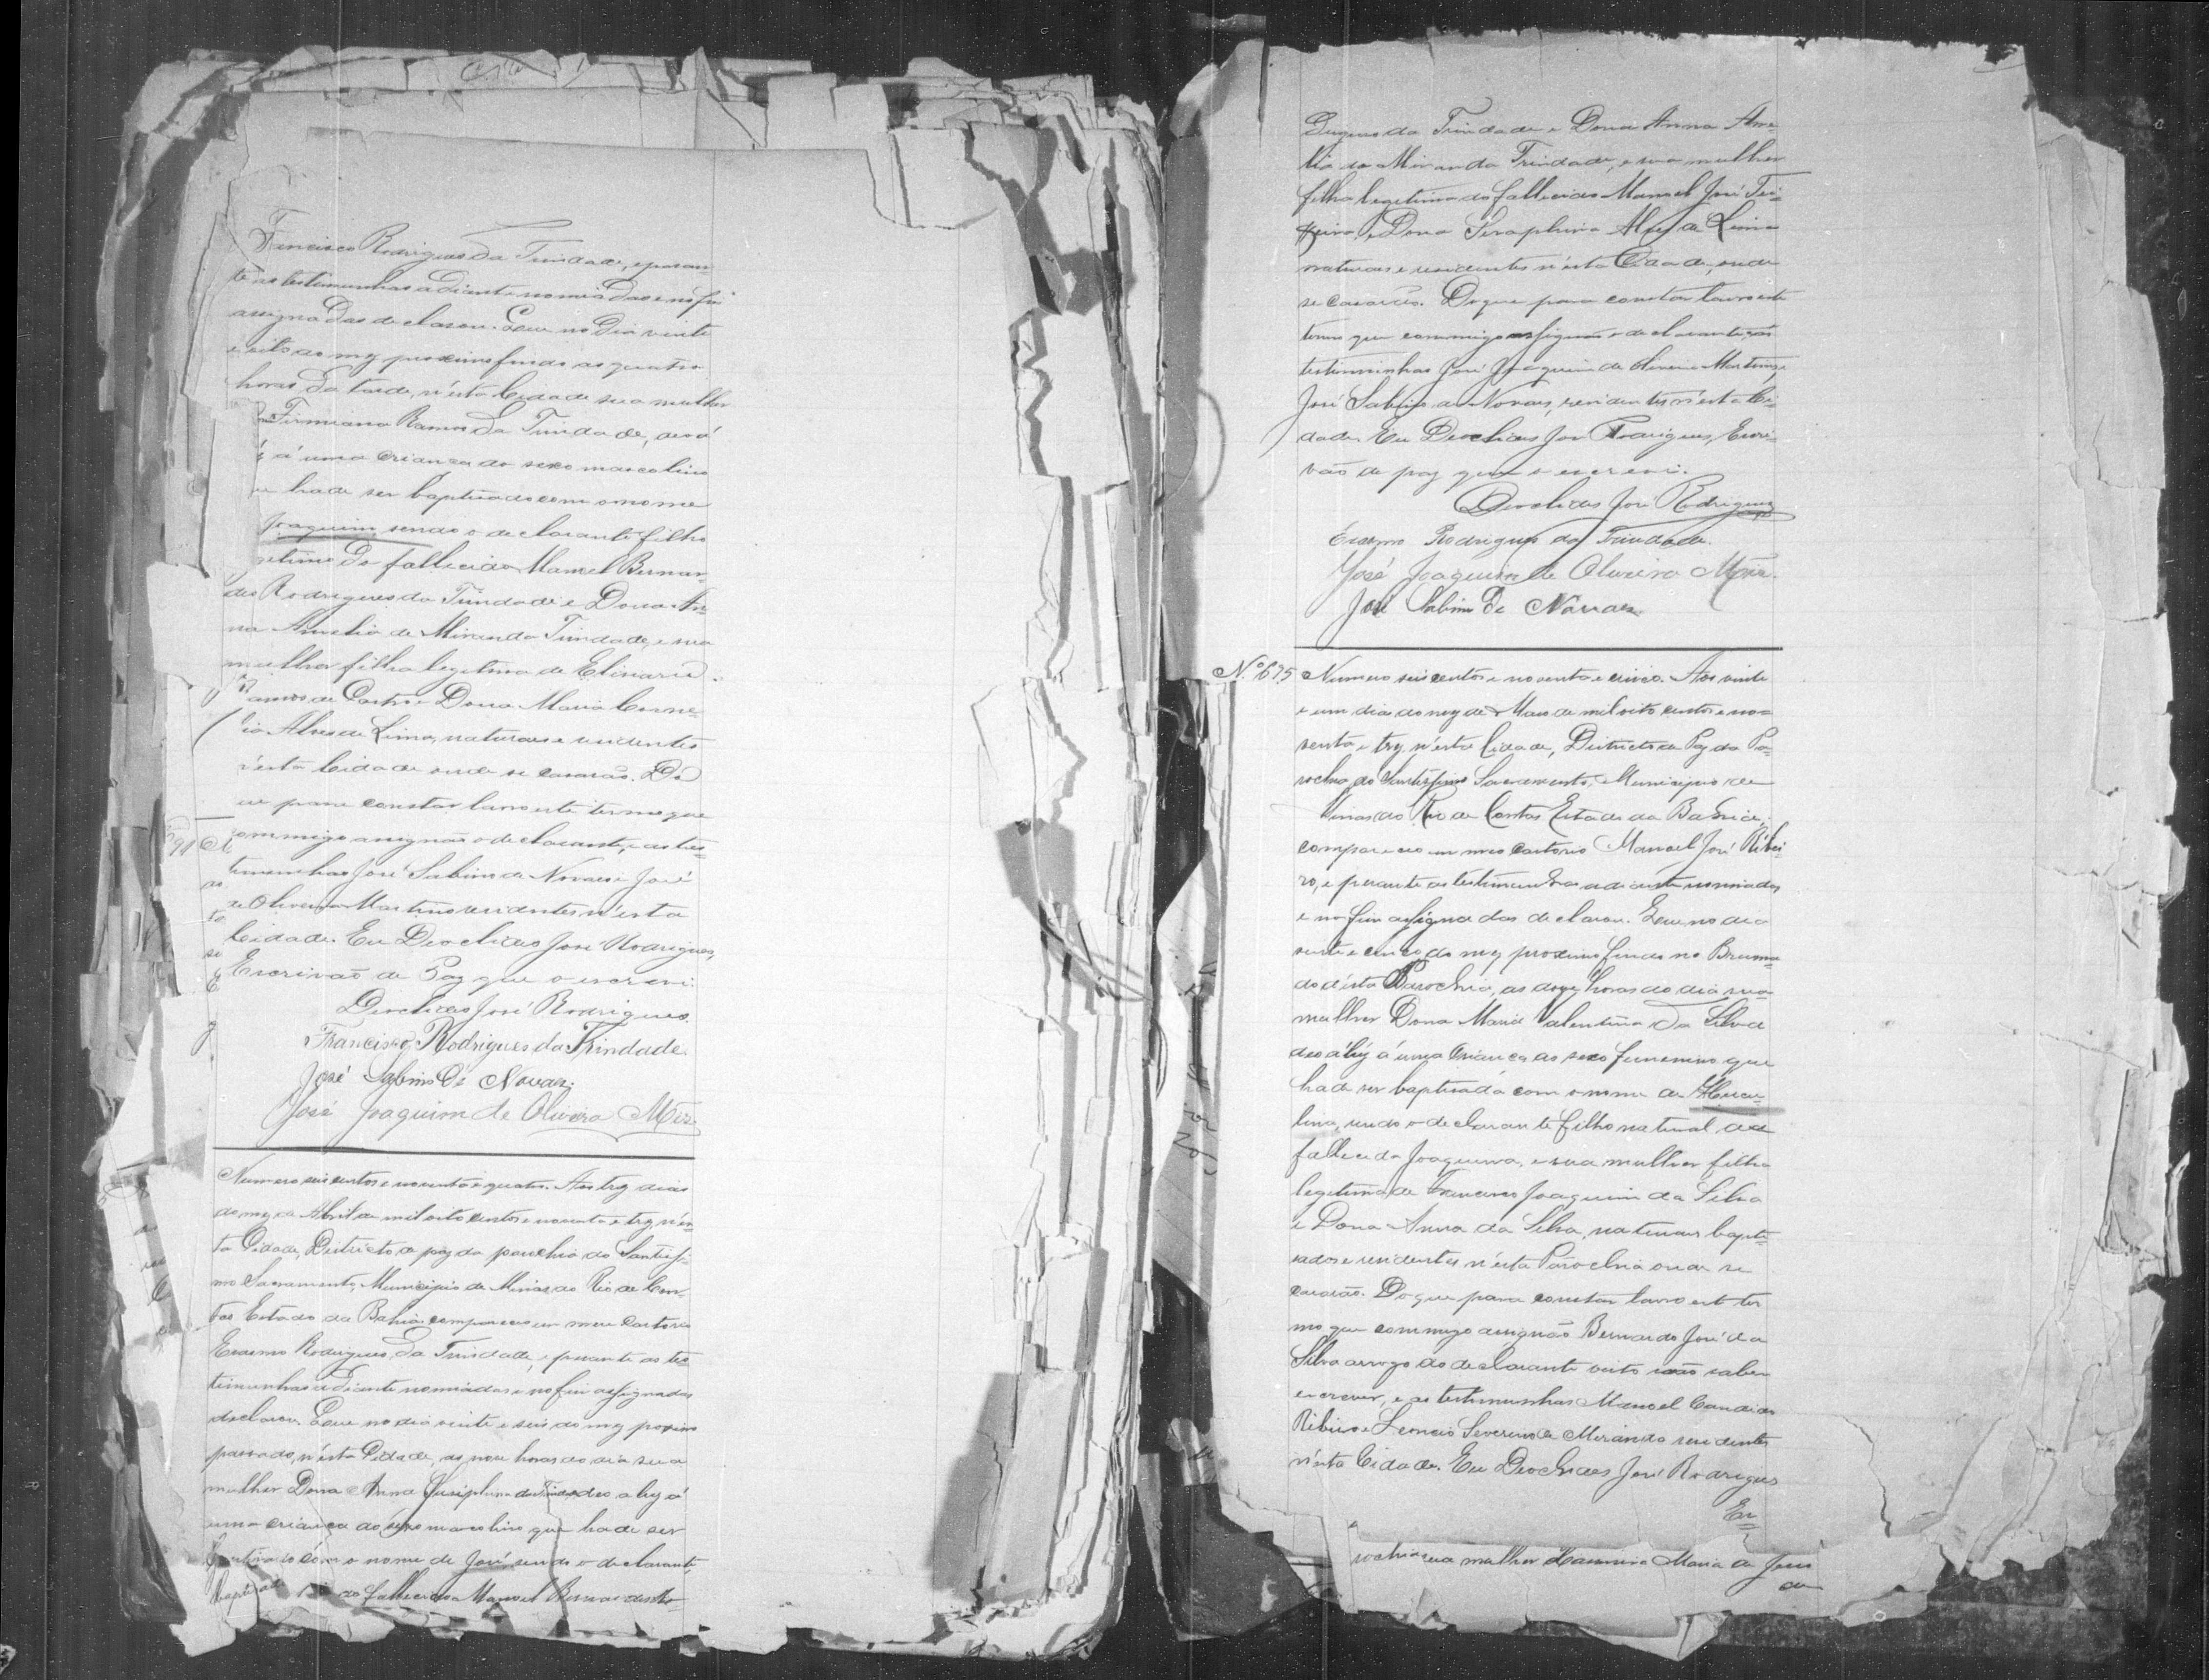 Francisco Rodrigues da Trindade, e peran
te as testemunhas adiante nomiadas e no fim
assignadas declarou. Que no dia vinte
e oito do mez proximo findo as quatro
horas da tarde, n'esta Cidade sua mulher
Firmiana Ramos da Trindade, deo á
á uma criança do sexo mascolino
hade ser baptisado com o nome
Joaquim sendo o declarante filho
getimo do fallecido Manoel Bernar-
des Rodrigues da Trindade e Dona An-
na Amelia de Miranda Trindade, e sua
mulher filha legitima de
Ramos de Castro e Dona Maria Corne-
lia Alves de Lima, naturaes e residentes
n'esta Cidade onde se casarão. Do
que para constar lavro este termo que
commigo assignão o declarante, e as tes-
temunhas José Sabino de Novaes e José
de Oliveira Martins residentes n'esta
Cidade. Eu Deoclides José Rodrigues,
Escrivão de Paz que o escrevi.
Deoclides José Rodrigues.
Francisco Rodrigues da Trindade.
José Sabino de Novaes.
José Joaquim de Oliveira Mēs.
Numero seis centos e noventa e quatro. Aos trez dias
do mez de Abril de mil oito centos e noventa e trez, n'es-
ta Cidade, Districto de paz da parochia do Santissi-
mo Sacramento, Municipio de Minas do Rio de Con-
tas Estado da Bahia compareceo em meu Cartorio
Erasmo Rodrigues da Trindade, e perante as tes-
timunhas adiante nomiadas e no fim assignadas
declarou. Que no dia vinte e seis do mez proximo
passado, n'esta Cidade, as nove horas do dia sua
mulher Dona Anna da Trindade deo a luz á
uma criança do sexo mascolino que hade ser
baptisado com o nome de José sendo o declarante,
do fallecido Manoel Bernardes Ro-
drigues da Trindade e Dona Anna Ame-
lia de Miranda Trindade, e sua mulher
filha legitima do fallecido Manoel José Tei-
xeira e Dona Seraphina Alves de Lima
naturaes e residentes n'esta Cidade, onde
se casarão. Do que para constar lavro este
termo que commigo assignão o declarante, e as
testimunhas José Joaquim de Oliveira Martins, e
José Sabino de Novaes, residentes n'esta Ci-
dade. Eu Deoclides José Rodrigues, Escri-
vão de paz que o escrevi.
Deoclides José Rodrigues
Erasmo Rodrigues da Trindade.
José Joaquim de Oliveira Mēs.
José Sabino de Novaes
N.º 695 Numero seis centos e noventa e cinco. Aos vinte
e um dias do mez de Maio de mil oito centos e no-
venta e trez, n'esta Cidade, Districto de Paz da Pa-
rochia do Santissimo Sacramento, Municipio de
Minas do Rio de Contas Estado da Bahia,
compareceo em meu Cartorio Manoel José Ribei-
ro, e perante as testimunhas adiante nomiadas
e no fim assignadas declarou. Que no dia
vinte e cinco do mez proximo findo no Bruma-
do d'esta Parochia, as doze horas do dia sua
mulher Dona Maria Valentina da Silva
deo á luz á uma criança do sexo femenino que
hade ser baptisada com o nome de Hercu-
lina, sendo o declarante filho natural da
fallecida Joaquina, e sua mulher filha
legitima de Francisco Joaquim da Silva
e Dona Anna da Silva, naturaes bapti-
sados e residentes n'esta Parochia onde se
casarão. Do que para constar lavro este ter
mo que commigo assignão Bernardo José da
Silva arrogo do declarante visto não saber
escrever, e as testimunhas Manoel Candido
Ribeiro e Leoncio Severino de Miranda residentes
n'esta Cidade. Eu Deoclides José Rodrigues
Es-
rochia sua mulher Maria de Jesus